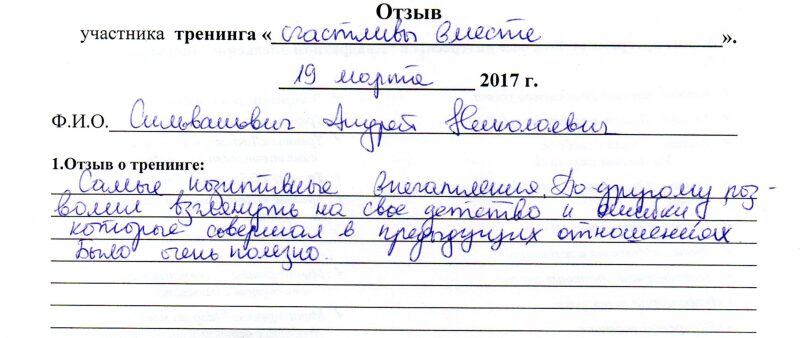 Отзыв
участника тренинга «счастливы вместе».
19 марта 2017 г.
Ф.И.О. Сильвашович Андрей Николаевич
1.Отзыв о тренинге:
Самые позитивные впечатления. По-другому поз-
волил взглянуть на свое детство и ошибки,
которые совершал в предыдущих отношениях
Было очень полезно.